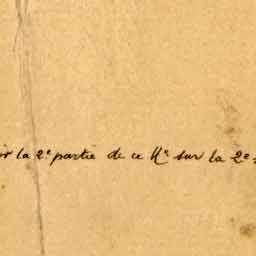 ir la 2e partie de ce Mc sur la 2e